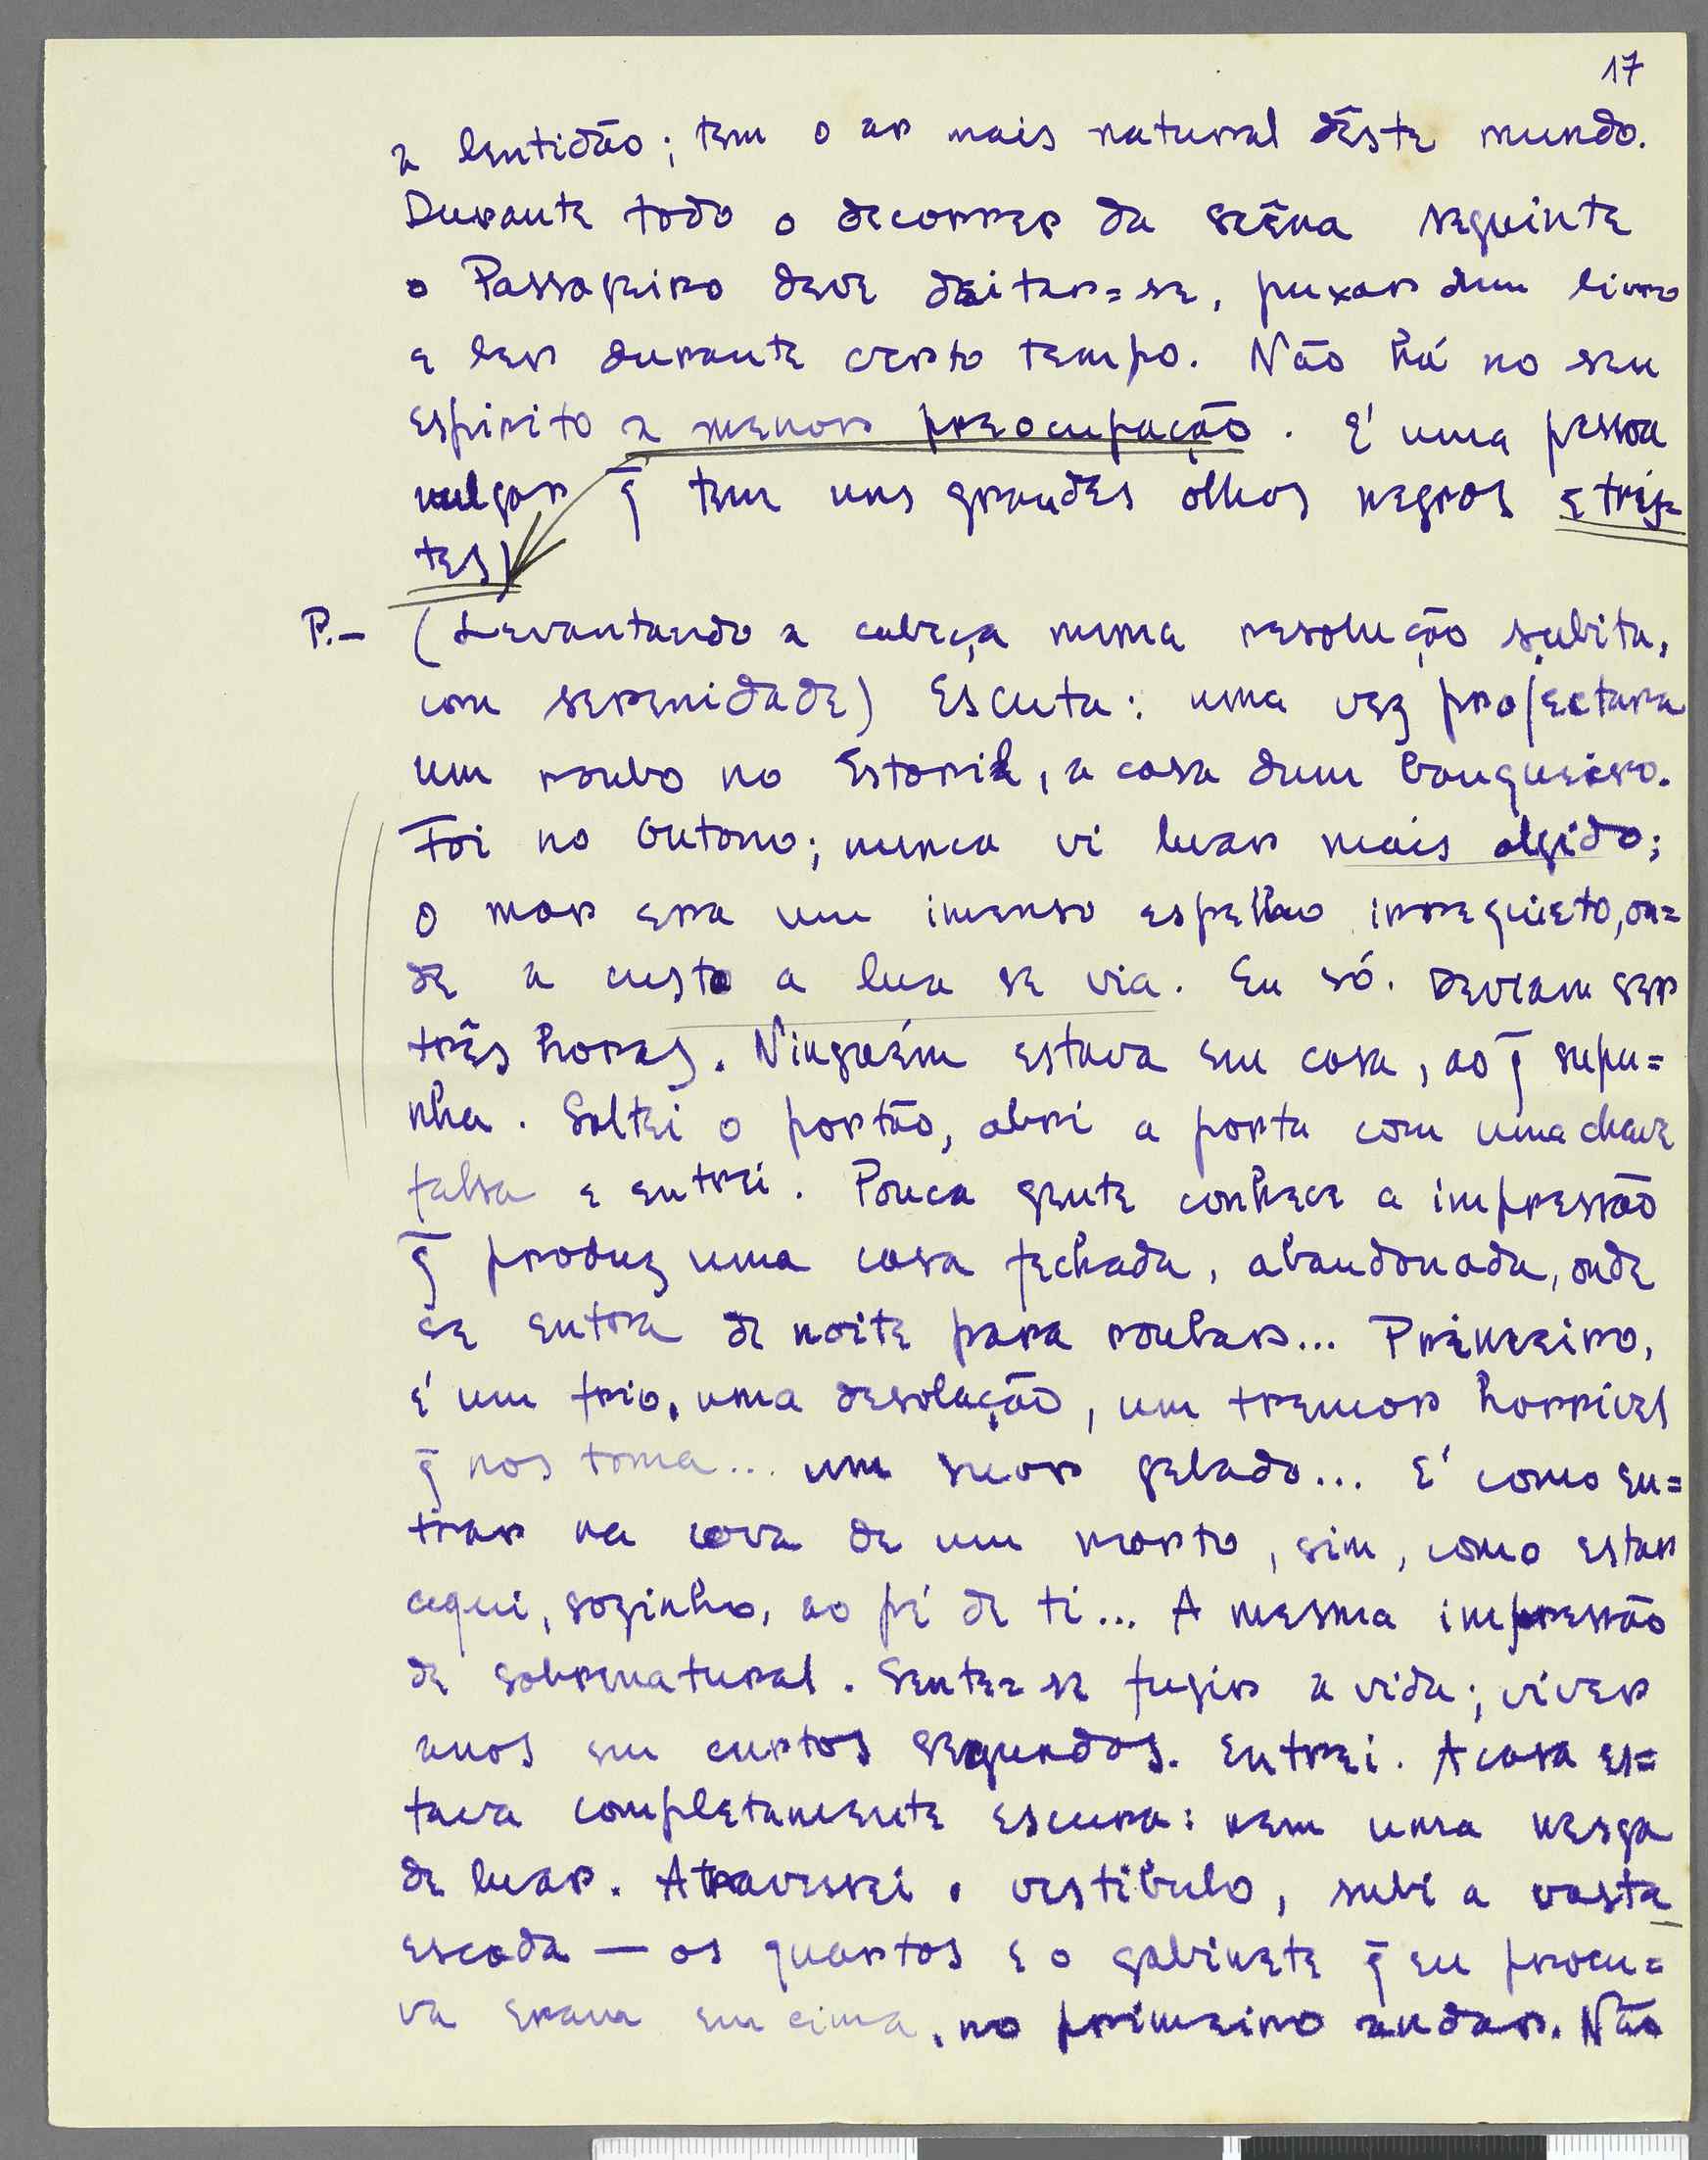 17
a lentidão; tem o ar mais natural dêste mundo.
Durante todo o decorrer da scêna seguinte
o Passageiro deve deitar=se, puxar dum livro
e ler durante certo tempo. Não há no seu
espirito a menor preocupação. E' uma pessoa
vulgar q̄ tem uns grandes olhos negros e tris=
tes)
P.— (Levantando a cabeça numa resolução subita,
com serenidade) Escuta: uma vez projectara
um roubo no Estoril, a casa dum banqueiro.
Foi no Outono; nunca vi luar mais algido;
o mar era um imenso espelho irrequieto, on=
de a custo a lua se via. Eu só. Deviam ser
três horas. Ninguém estava em casa, ao q̄ supu=
nha. Saltei o portão, abri a porta com uma chave
falsa e entrei. Pouca gente conhece a impressão
q̄ produz uma casa fechada, abandonada, onde
se entra de noite para roubar... Primeiro,
é um frio, uma desolação, um tremor horrivel
q̄ nos toma... um suor gelado... E' como en=
trar na cova de um morto, sim, como estar
aqui, sozinho, ao pé de ti... A mesma impressão
de sobrenatural. Sente=se fugir a vida; viver
anos em curtos segundos. Entrei. A casa es=
tava completamente escura: nem uma nesga
de luar. Atravessei o vestibulo, subi a vasta
escada — os quartos e o gabinete q̄ eu procu=
va eram em cima, no primeiro andar. Não